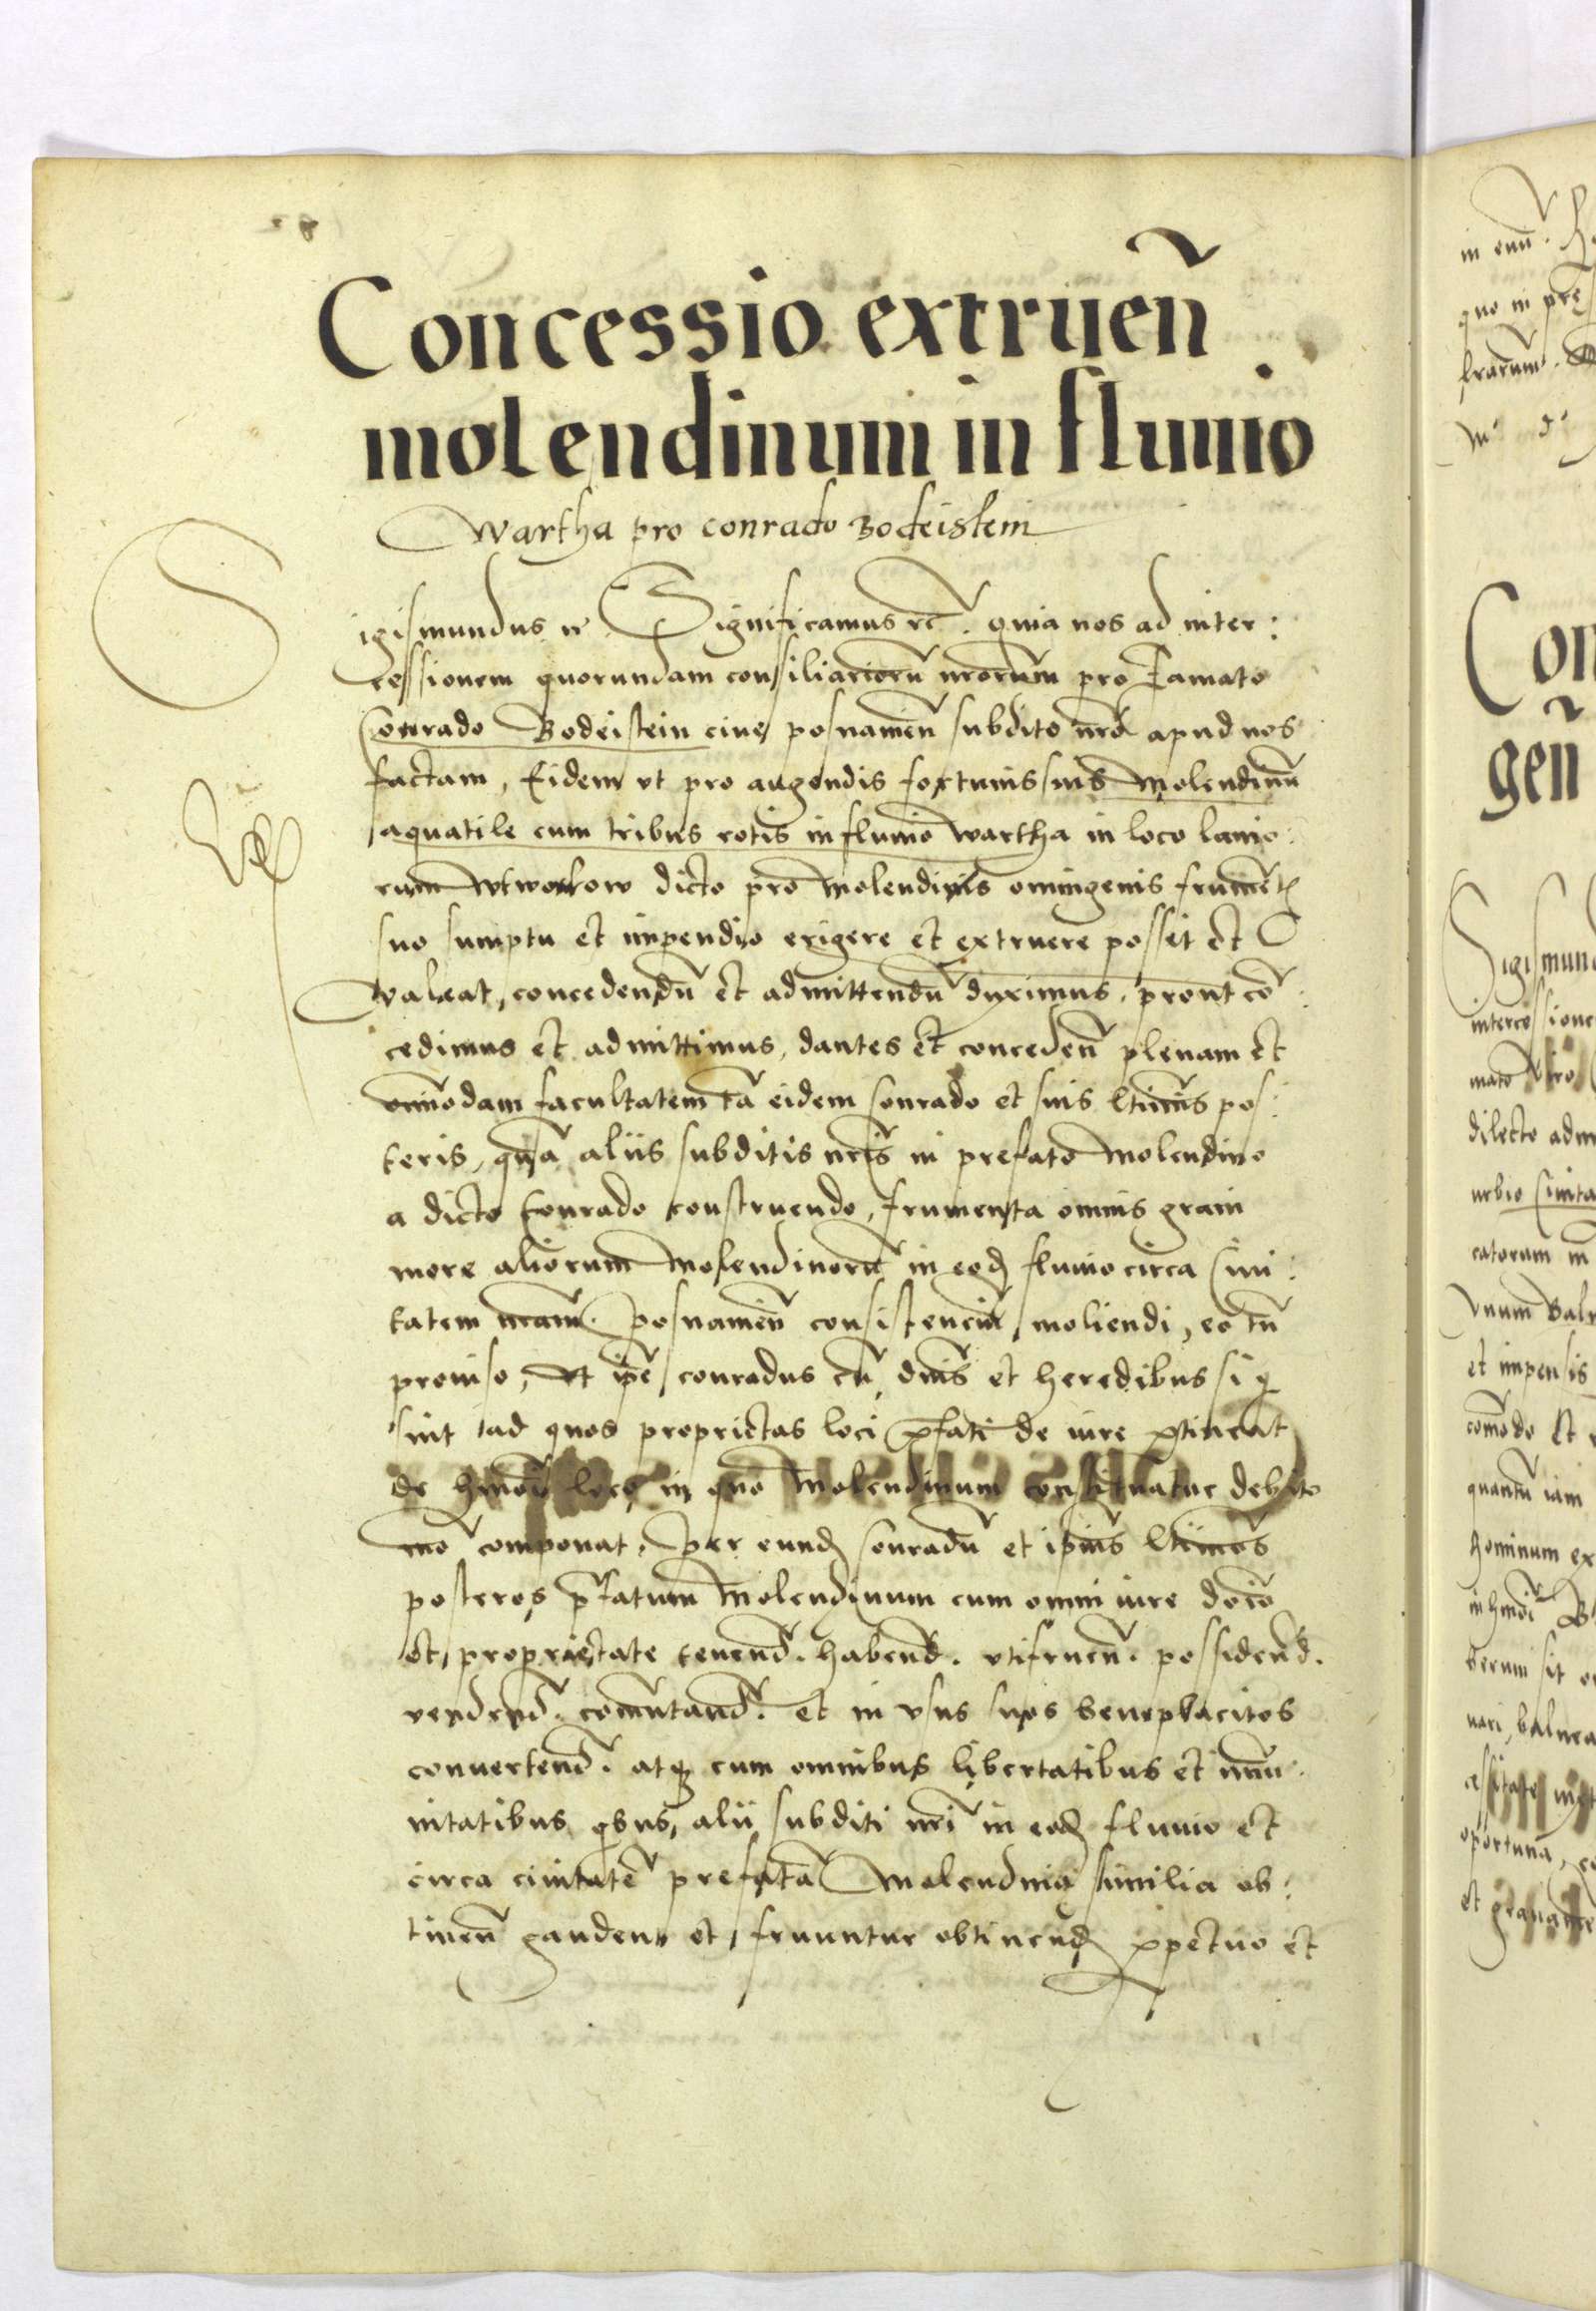 Concessio extruen̄
molendinum in fluuio
Wartha pro conrado Bodeistein
Sigismundus etc Significamus etc̄. quia nos ad inter:
cessionem quorundam consiliariorū nrōrum pro Famato
Conrado Bodeistein ciue posnanień subdito nrō apud nos
factam, Eidem vt pro augendis fortunis suis Molendinū
aquatile cum tribus rotis in fluuio Wartha in loco lanio:
rum dicto pro Molendinis omnigenis frumēt
suo sumptu et impendio erigere et extruere possit et
Valeat, concedendū et admittendū duximus, prout cō:
cedimus et admittimus, dantes et conceden̄ plenam et
omnōdam facultatem tā eidem Conrado et suis ltimis pos:
teris, quā aliis subditis nrīs in prefato Molendino
a dicto Conrado construendo, frumenta omnis grani
more aliorum Molendinorū in eod fluuio circa Ciui:
tatem nrām Posnanień consisteńciū, moliendi, eo tn̄
prouiso, vt ipē conradus cū dnīs et heredibus si q
sint ad quos proprietas loci p̄fati de iure ptineat
de hmōi loco in quo Molendinum constituatur debito
mō componat, Per eund Conradū et ipiūs ltimos
posteros p̄fatum Molendinum cum omni iure dnīo
et proprietate tenend̄. habend̄. vtifruen̄. possidend̄.
vendend̄. comutand̄. et in vsus suos beneplacitos
conuertend̄. atq cum omnibus libertatibus et immu:
nitatibus qbus alii subditi nrī in eod fluuio et
circa ciuitatē prefatā Molendina similia ob:
tinen̄ gaudent et fruuntur obtinend ppetuo et
in eum.
quo in pre
Con
gen
Sigismund
intercessione
dilecto adm
catorum in
Vnum Baln
et impensis
comodo et
quantū iam
hominum ex
in hmōi
berum sit
oportuna, co